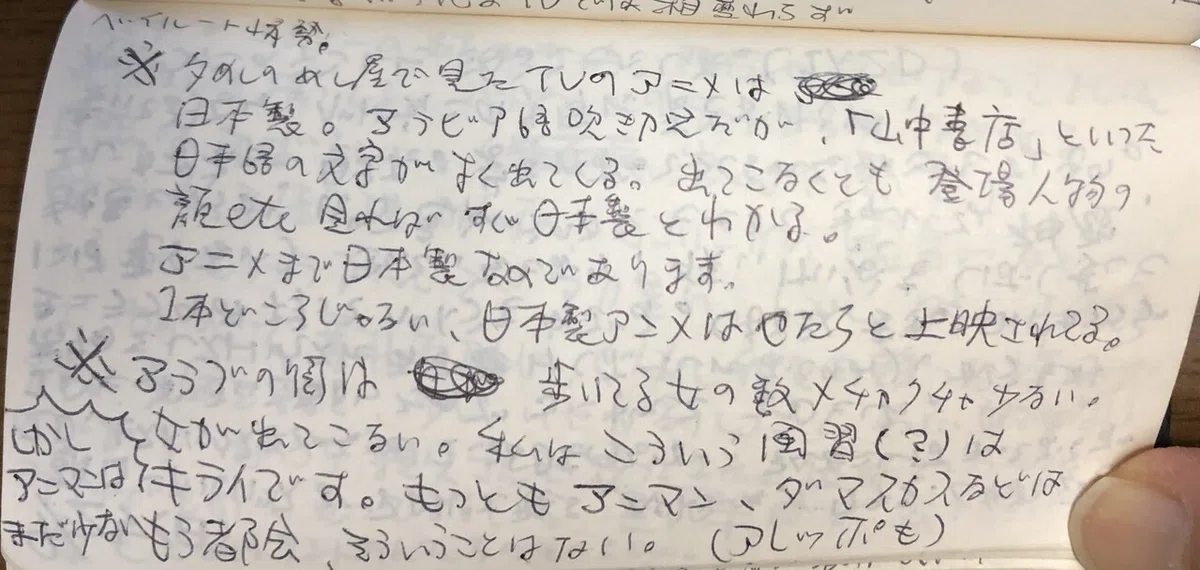 相変わらず
※ 夕めしのめし屋で見たTVのアニメは
日本製。アラビア語吹き切えだが、「山中書店」といった
日本語の文字がよく出てくる。出てこなくても登場人物の
顔etc見ればすぐ日本製とわかる。
アニメまで日本製なのであります。
1本どころじゃない、日本製アニメはやたらと上映されてる。
※ アラブの街は 歩いてる女の数メチャクチャ少ない。
女が出てこない。私はこういう風習(?)は
キライです。もっともアンマン、ダマスカスなどは
もう都会、そういうことはない。(アレッポも)
しかし
アンマンは
まだ少ない